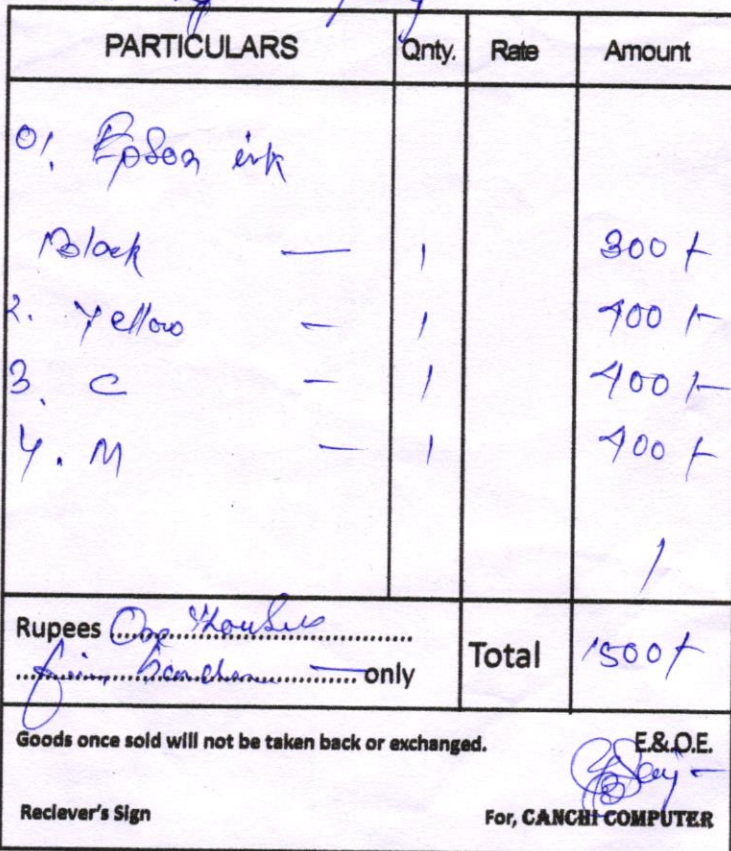 PARTICULARS Qnty. Rate Amount
01. Epson ink
Black — 1 300/-
2. Yellow — 1 400/-
3. C — 1 400/-
4. M — 1 400/-
Rupees One Thousand
five hundred only
Total 1500/-
Goods once sold will not be taken back or exchanged. E.&.O.E.
Reciever's Sign For, CANCHI COMPUTER